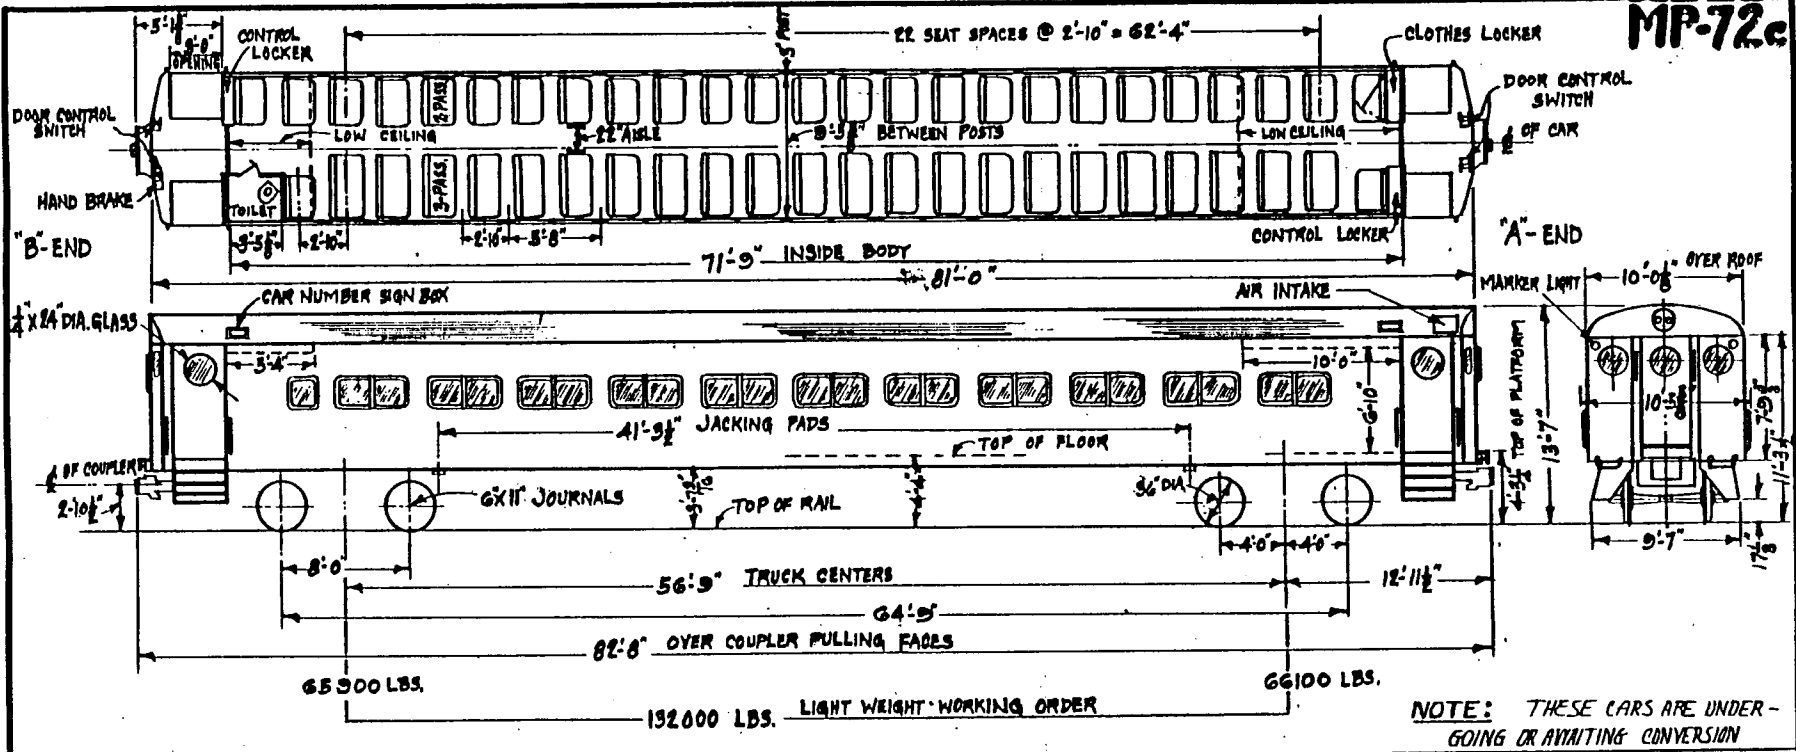 MP-72c
5'-1⅛"
3'-0"
OPENING
CONTROL
LOCKER
22 SEAT SPACES @ 2'-10" = 62'-4"
3" POST
CLOTHES LOCKER
DOOR CONTROL
SWITCH
DOOR CONTROL
SWITCH
2-PASS.
LOW CEILING
22" AISLE
BETWEEN POSTS
LOW CEILING
℄ OF CAR
HAND BRAKE
TOILET
3-PASS.
"B"-END
2'-10"
2'-10"
5'-8"
CONTROL LOCKER
"A"-END
71'-9" INSIDE BODY
81'-0"
¼" X 24" DIA. GLASS
CAR NUMBER SIGN BOX
AIR INTAKE
MARKER LIGHT
10'-0⅛" OVER ROOF
5'-4"
10'-0"
6'-10"
TOP OF PLATFORM
4'-3½"
13'-7"
41'-3½" JACKING PADS
TOP OF FLOOR
℄ OF COUPLER
2'-10½"
6"X11" JOURNALS
TOP OF RAIL
4'-4"
36" DIA.
11'-3½"
9'-7"
17⅛"
8'-0"
4'-0"
4'-0"
56'-9" TRUCK CENTERS
12'-11½"
64'-9"
82'-8" OVER COUPLER PULLING FACES
65900 LBS.
66100 LBS.
132000 LBS. LIGHT WEIGHT-WORKING ORDER
NOTE: THESE CARS ARE UNDER-
GOING OR AWAITING CONVERSION